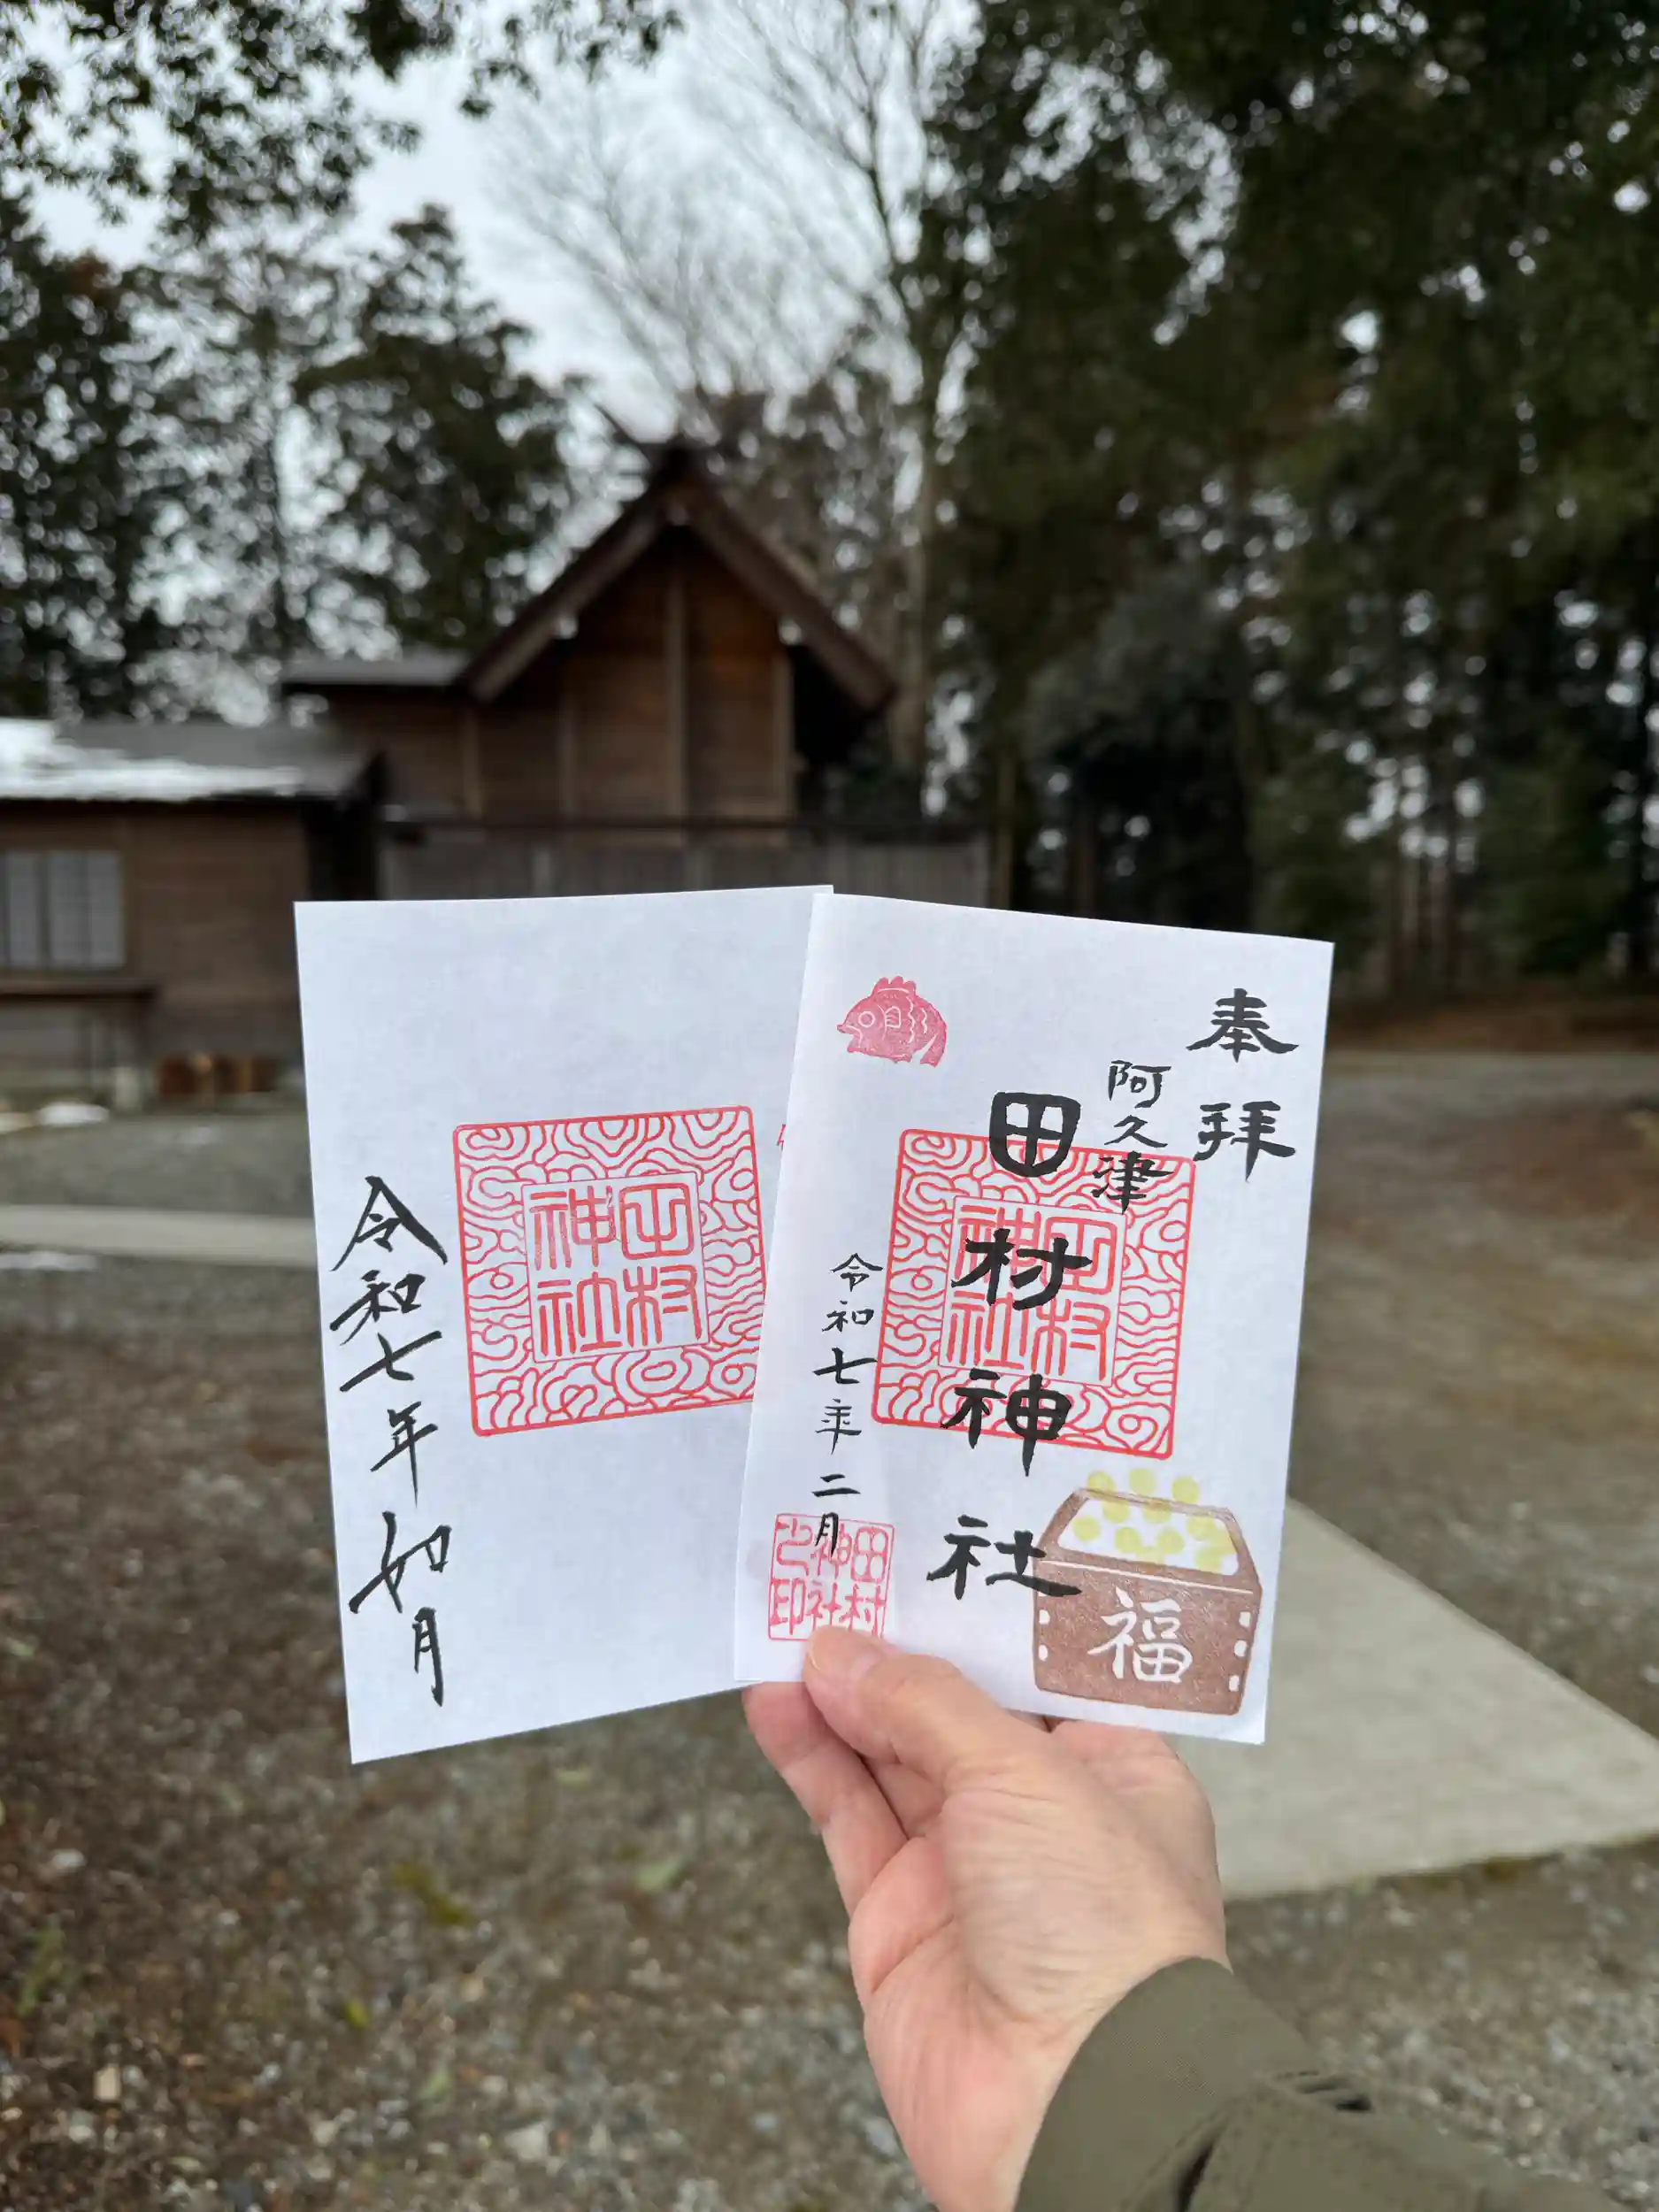 奉拝
阿久津
田村神社
令和七年二月
田村
神社
田村
神社
之印
福
令和七年如月
田村
神社